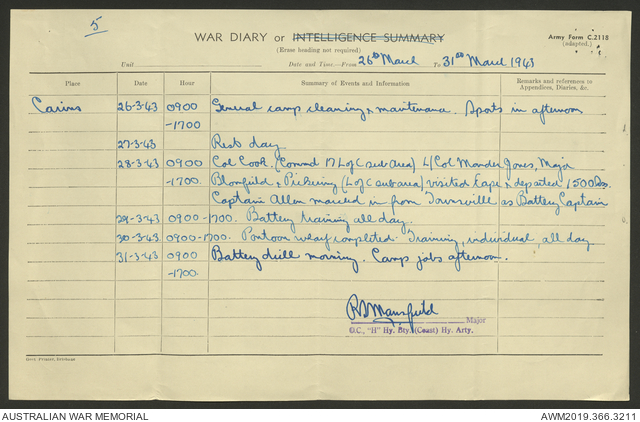 5
WAR DIARY or INTELLIGENCE SUMMARY
Army Form C.2118
(adapted.)
(Erase heading not required)
Unit
Date and Time—From 26th March To 31st March 1943
Place Date Hour Summary of Events and Information Remarks and references to Appendices, Diaries, &c.
Cairns 26-3-43 0900 General camp cleaning & maintenance. Sports in afternoon
-1700
27-3-43 Rest day
28-3-43 0900 Col Cook, (Commd 17 L of C sub Area) L/Col Mander Jones, Major
-1700. Blomfield & Pickering (L of C sub area) visited Cape & departed 1500
Captain Allen marched in from Townsville as Battery Captain
29-3-43 0900-1700. Battery training all day.
30-3-43 0900-1700. Pontoon wharf completed. Training, individual all day
31-3-43 0900 Battery drill morning. Camp jobs afternoon.
-1700.
Mansfield
Major
O.C., "H" Hy. Bty. (Coast) Hy. Arty.
Govt. Printer, Brisbane
AUSTRALIAN WAR MEMORIAL
AWM2019.366.3211